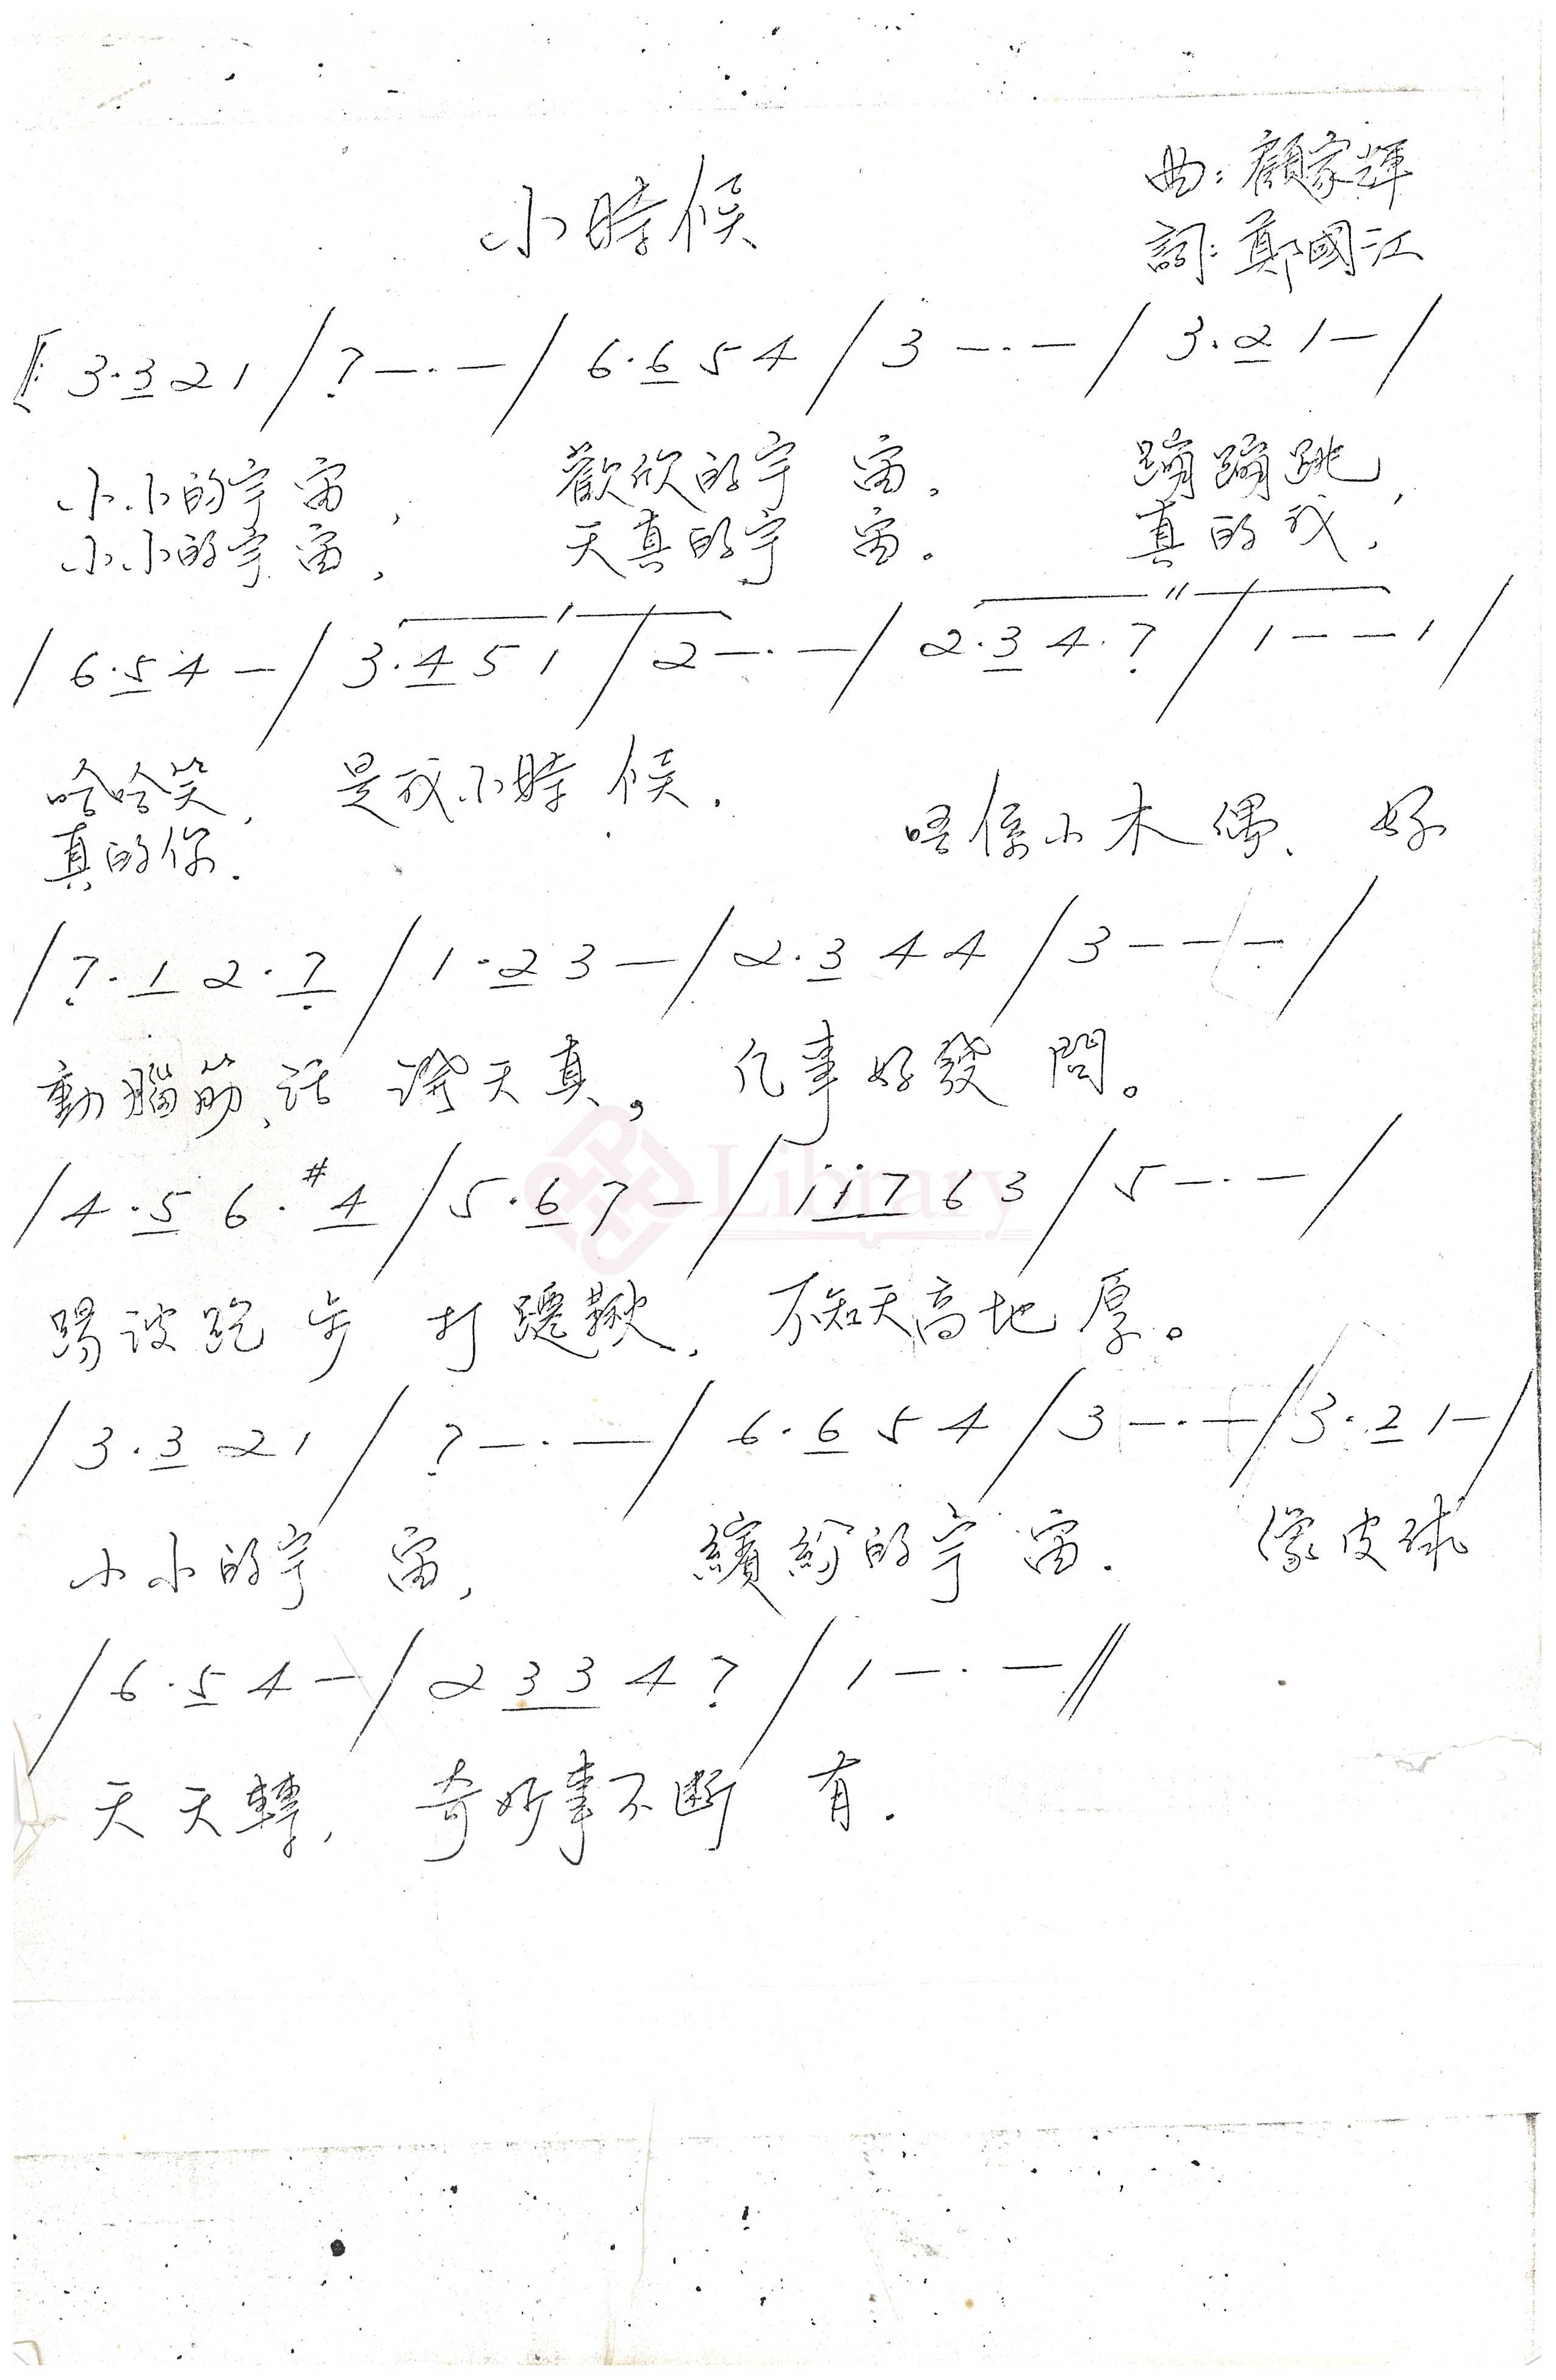 小時候
曲:顧家輝
詞:鄭國江
‖: 3·3 2 1 / 7 — · — / 6·6 5 4 / 3 — · — / 3·2 1 — /
小小的宇宙, 歡欣的宇宙。 蹦蹦跳,
小小的宇宙, 天真的宇宙。 真的我,
/ 6·5 4 — / 3·4 5 1 / 2 — · — / 2·3 4·7 / 1 — — 1 /
哈哈笑, 是我小時候. 唔係小木偶、 好
真的你.
/ 7·1 2·7 / 1·2 3 — / 2·3 4 4 / 3 — — — /
動腦筋、話 天真。 凡事好發問。
/ 4·5 6·#4 / 5·6 7 — / i i 7 6 3 / 5 — · — /
踢波跑步 打韆鞦, 不知天高地厚。
Library
/ 3·3 2 1 / 7 — · — / 6·6 5 4 / 3 — · — / 3·2 1 — /
小小的宇宙, 繽紛的宇宙. 像皮球
/ 6·5 4 — / 2 3 3 4 7 / 1 — · — //
天天轉, 奇妙事不斷有.